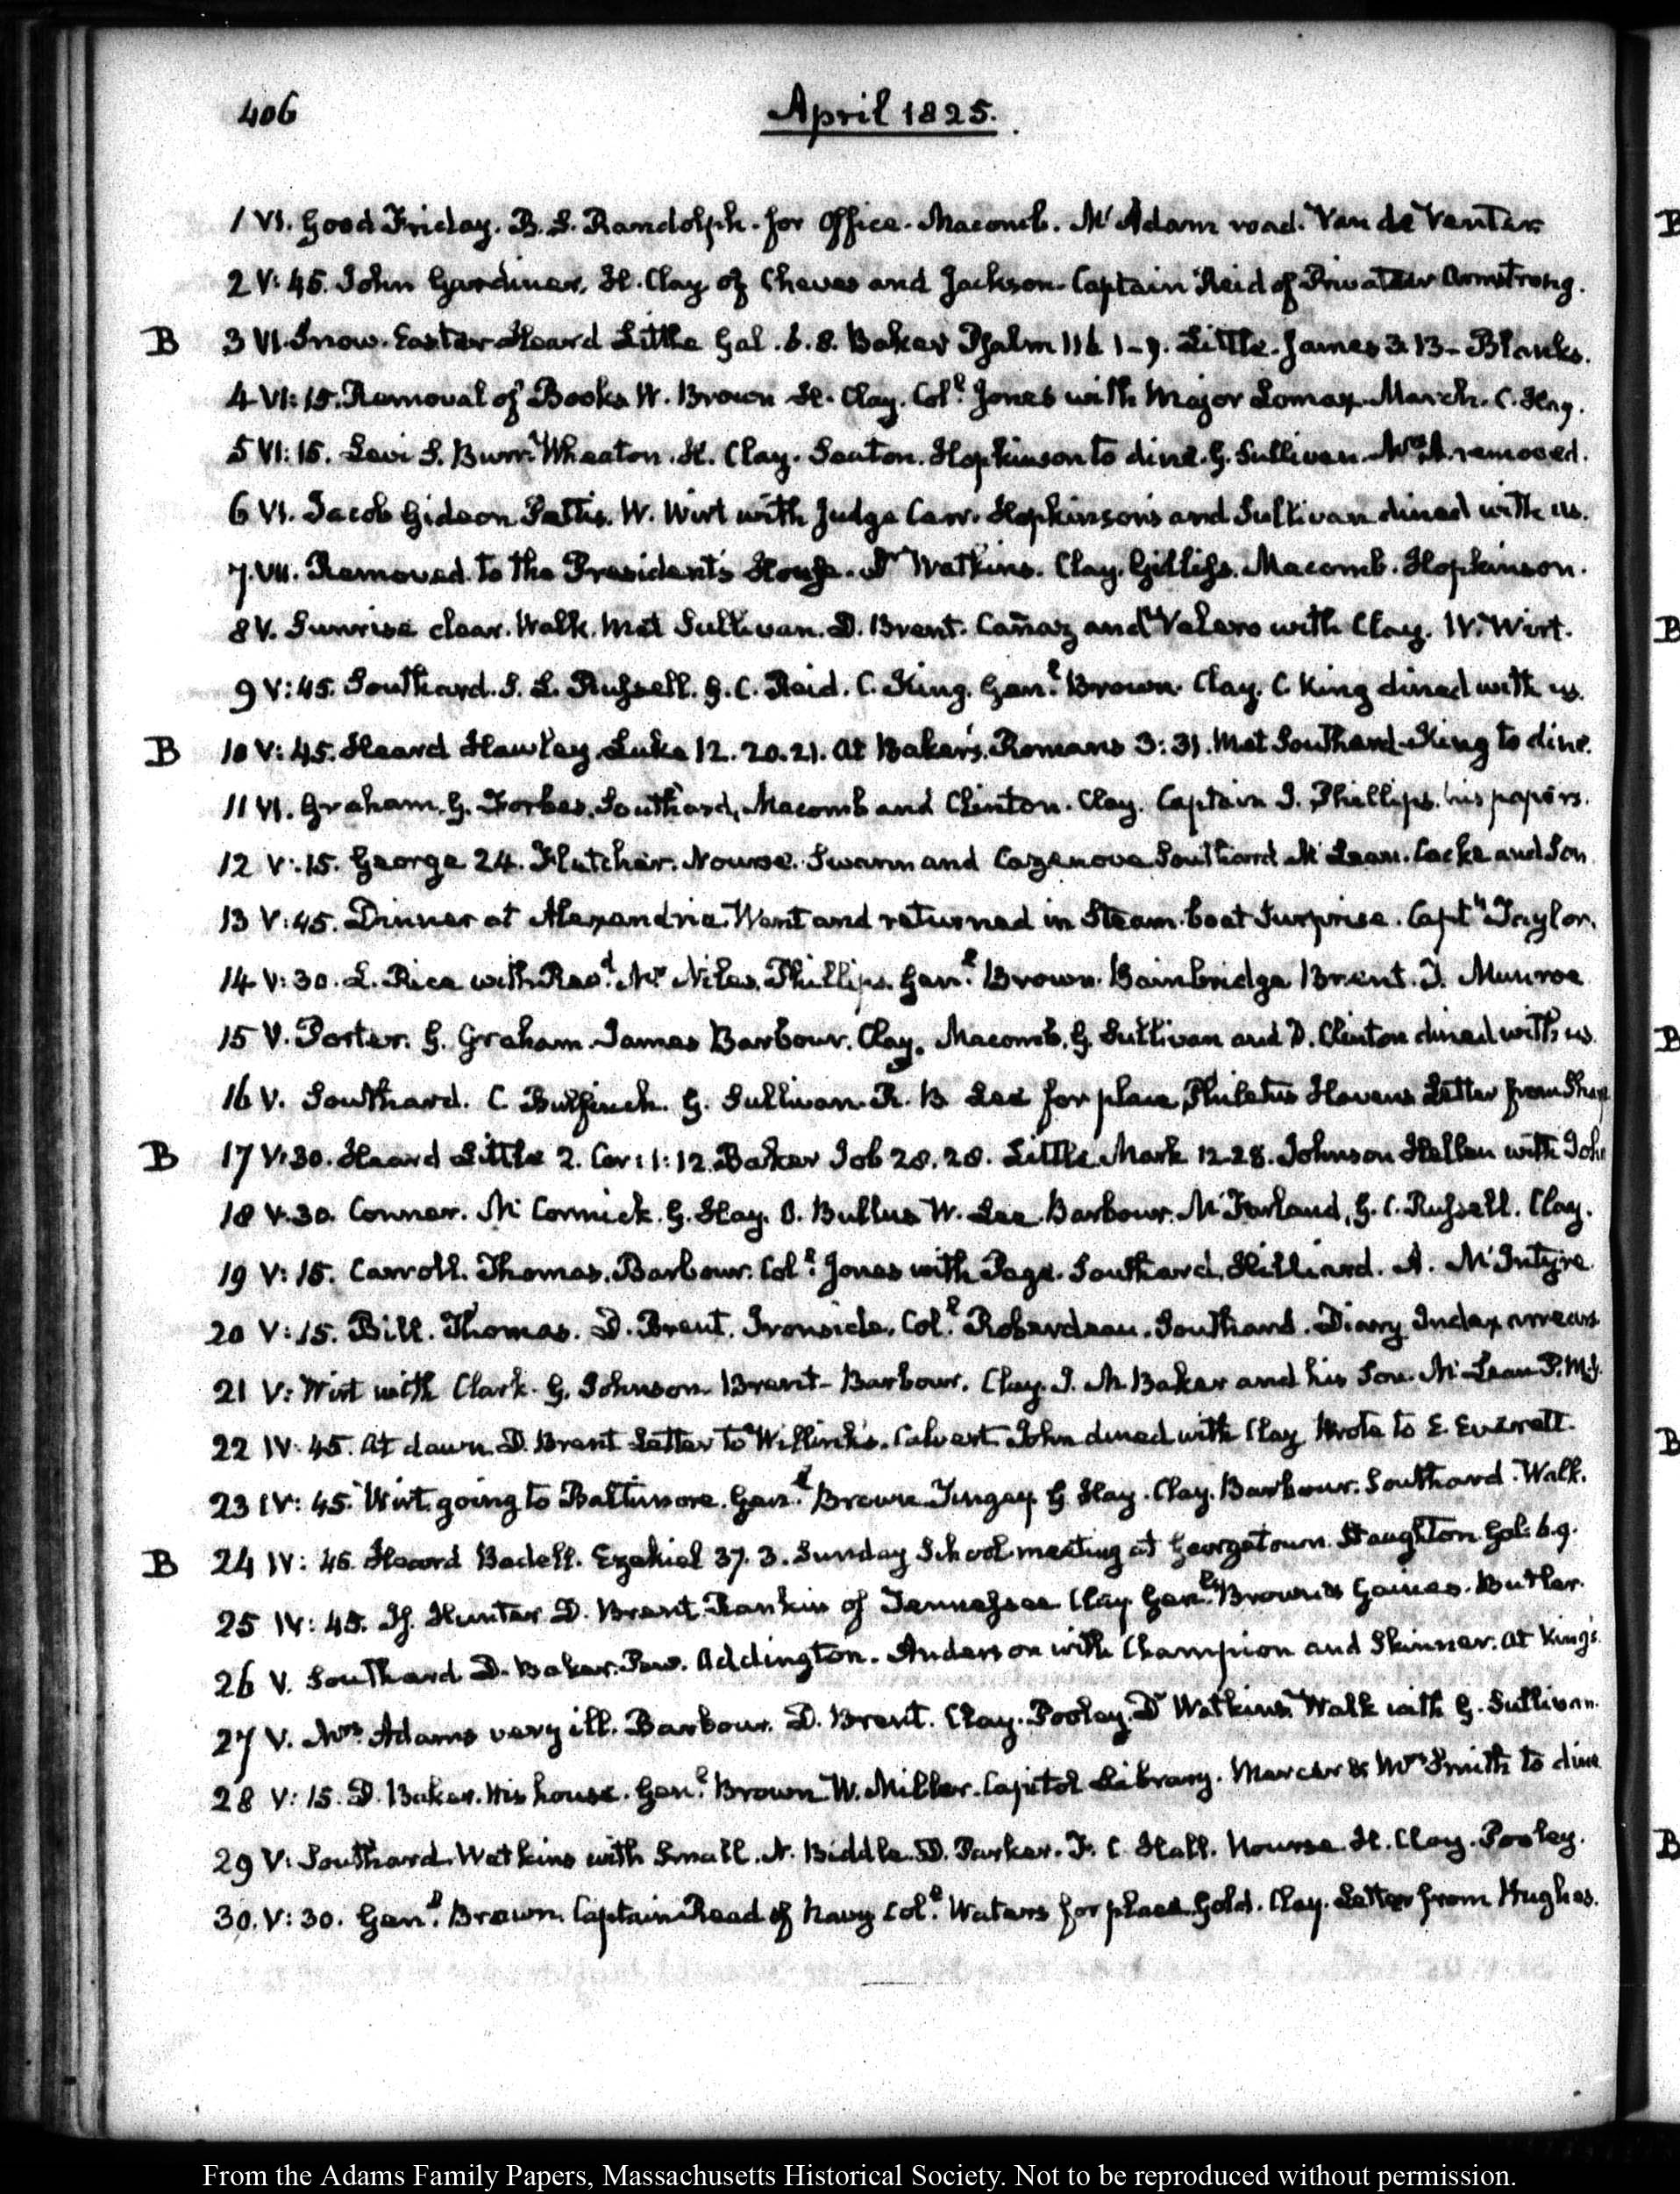 406
April 1825.
1 VI. Good Friday. B. S. Randolph. for Office. Macomb. McAdam road. Van de Venter
2 V:45. John Gardiner. H. Clay of Cheves and Jackson. Captain Reid of Privateer Armstrong.
B 3 VI. Snow. Easter Heard Little Gal. 6. 8. Baker Psalm 116 1-9. Little. James 3. 13- Blanks.
4 VI:15. Removal of Books W. Brown H. Clay. Coll. Jones with Major Lomax. March. C. Hay.
5 VI:15. Levi S. Burr. Wheaton. H. Clay. Seaton. Hopkinson to dine. G. Sullivan. Mrs A. removed.
6 VI. Jacob Gideon. Pettis. W. Wirt with Judge Carr. Hopkinson's and Sullivan dined with us.
7. VII. Removed to the President's House. Dr Watkins. Clay. Gilliss. Macomb. Hopkinson.
8 V. Sunrise clear. Walk. Met Sullivan. D. Brent. Cañaz and Valero with Clay. W. Wirt.
9 V:45. Southard. J. L. Russell. G. C. Reid. C. King. Genl. Brown. Clay. C King dined with us.
B 10 V:45. Heard Hawley. Luke 12. 20. 21. at Baker's. Romans 3:31. Met Southard. King to dine.
11 VI. Graham. G. Forbes. Southard, Macomb and Clinton. Clay. Captain I. Phillips. his papers.
12 V:15. George 24. Fletcher. Nourse. Swann and Cazenove Southard McLean. Locke and Son
13 V:45. Dinner at Alexandria. Went and returned in Steam-boat Surprise. Captn Taylor.
14 V:30. L. Rice with Revd. Mr Niles. Phillips. Genl. Brown. Bainbridge Brent. J. Munroe
15 V. Porter. G. Graham. James Barbour. Clay. Macomb. G. Sullivan and D. Clinton dined with us.
16 V. Southard. C Bulfinch. G. Sullivan. R. B Lee for place Philetus Havens Letter from
B 17 V:30. Heard Little 2. Cor: 1:12. Baker Job 28. 28. Little. Mark 12-28. Johnson Hellen with John
18 V:30. Conner. McCormick. G. Hay. O. Bullus W. Lee. Barbour. McFarland, G. C. Russell. Clay.
19 V:15. Carroll. Thomas. Barbour. Coll. Jones with Page. Southard. Hilliard. A. McIntyre.
20 V:15. Bill. Thomas. D. Brent. Ironside. Coll. Roberdeau. Southard. Diary Index arrears
21 V: Wirt with Clark. G. Johnson. Brent- Barbour. Clay. J. M. Baker and his Son. McLean P.M.G.
22 IV:45. At dawn. D. Brent Letter to Willink's. Calvert. John dined with Clay Wrote to E. Everett.
23 IV:45. Wirt. going to Baltimore. Genl. Brown Tingey G Hay. Clay. Barbour. Southard. Walk.
B 24 IV:45. Heard Bedell. Ezekiel 37. 3. Sunday School meeting at Georgetown. Staughton Gal: 6. 9.
25 IV:45. Hunter D. Brent. Rankin of Tennessee Clay Genls. Brown & Gaines. Butler.
26 V. Southard D. Baker. Pew. Addington. Anderson with Champion and Skinner. at King's.
27 V. Mrs Adams very ill. Barbour. D. Brent. Clay. Pooley. Dr Watkins. Walk with G. Sullivan.
28 V:15. D. Baker. His house. Genl. Brown W. Miller. Capitol Library. Mercer & Mrs Smith to dine
29 V: Southard. Watkins with Small. N. Biddle. D. Parker. F. C. Hall. Nourse. H. Clay. Pooley.
30. V:30. Genl. Brown. Captain Read of Navy Coll. Waters for place. Gold. Clay. Letter from Hughes.
B
B
B
B
B
From the Adams Family Papers, Massachusetts Historical Society. Not to be reproduced without permission.